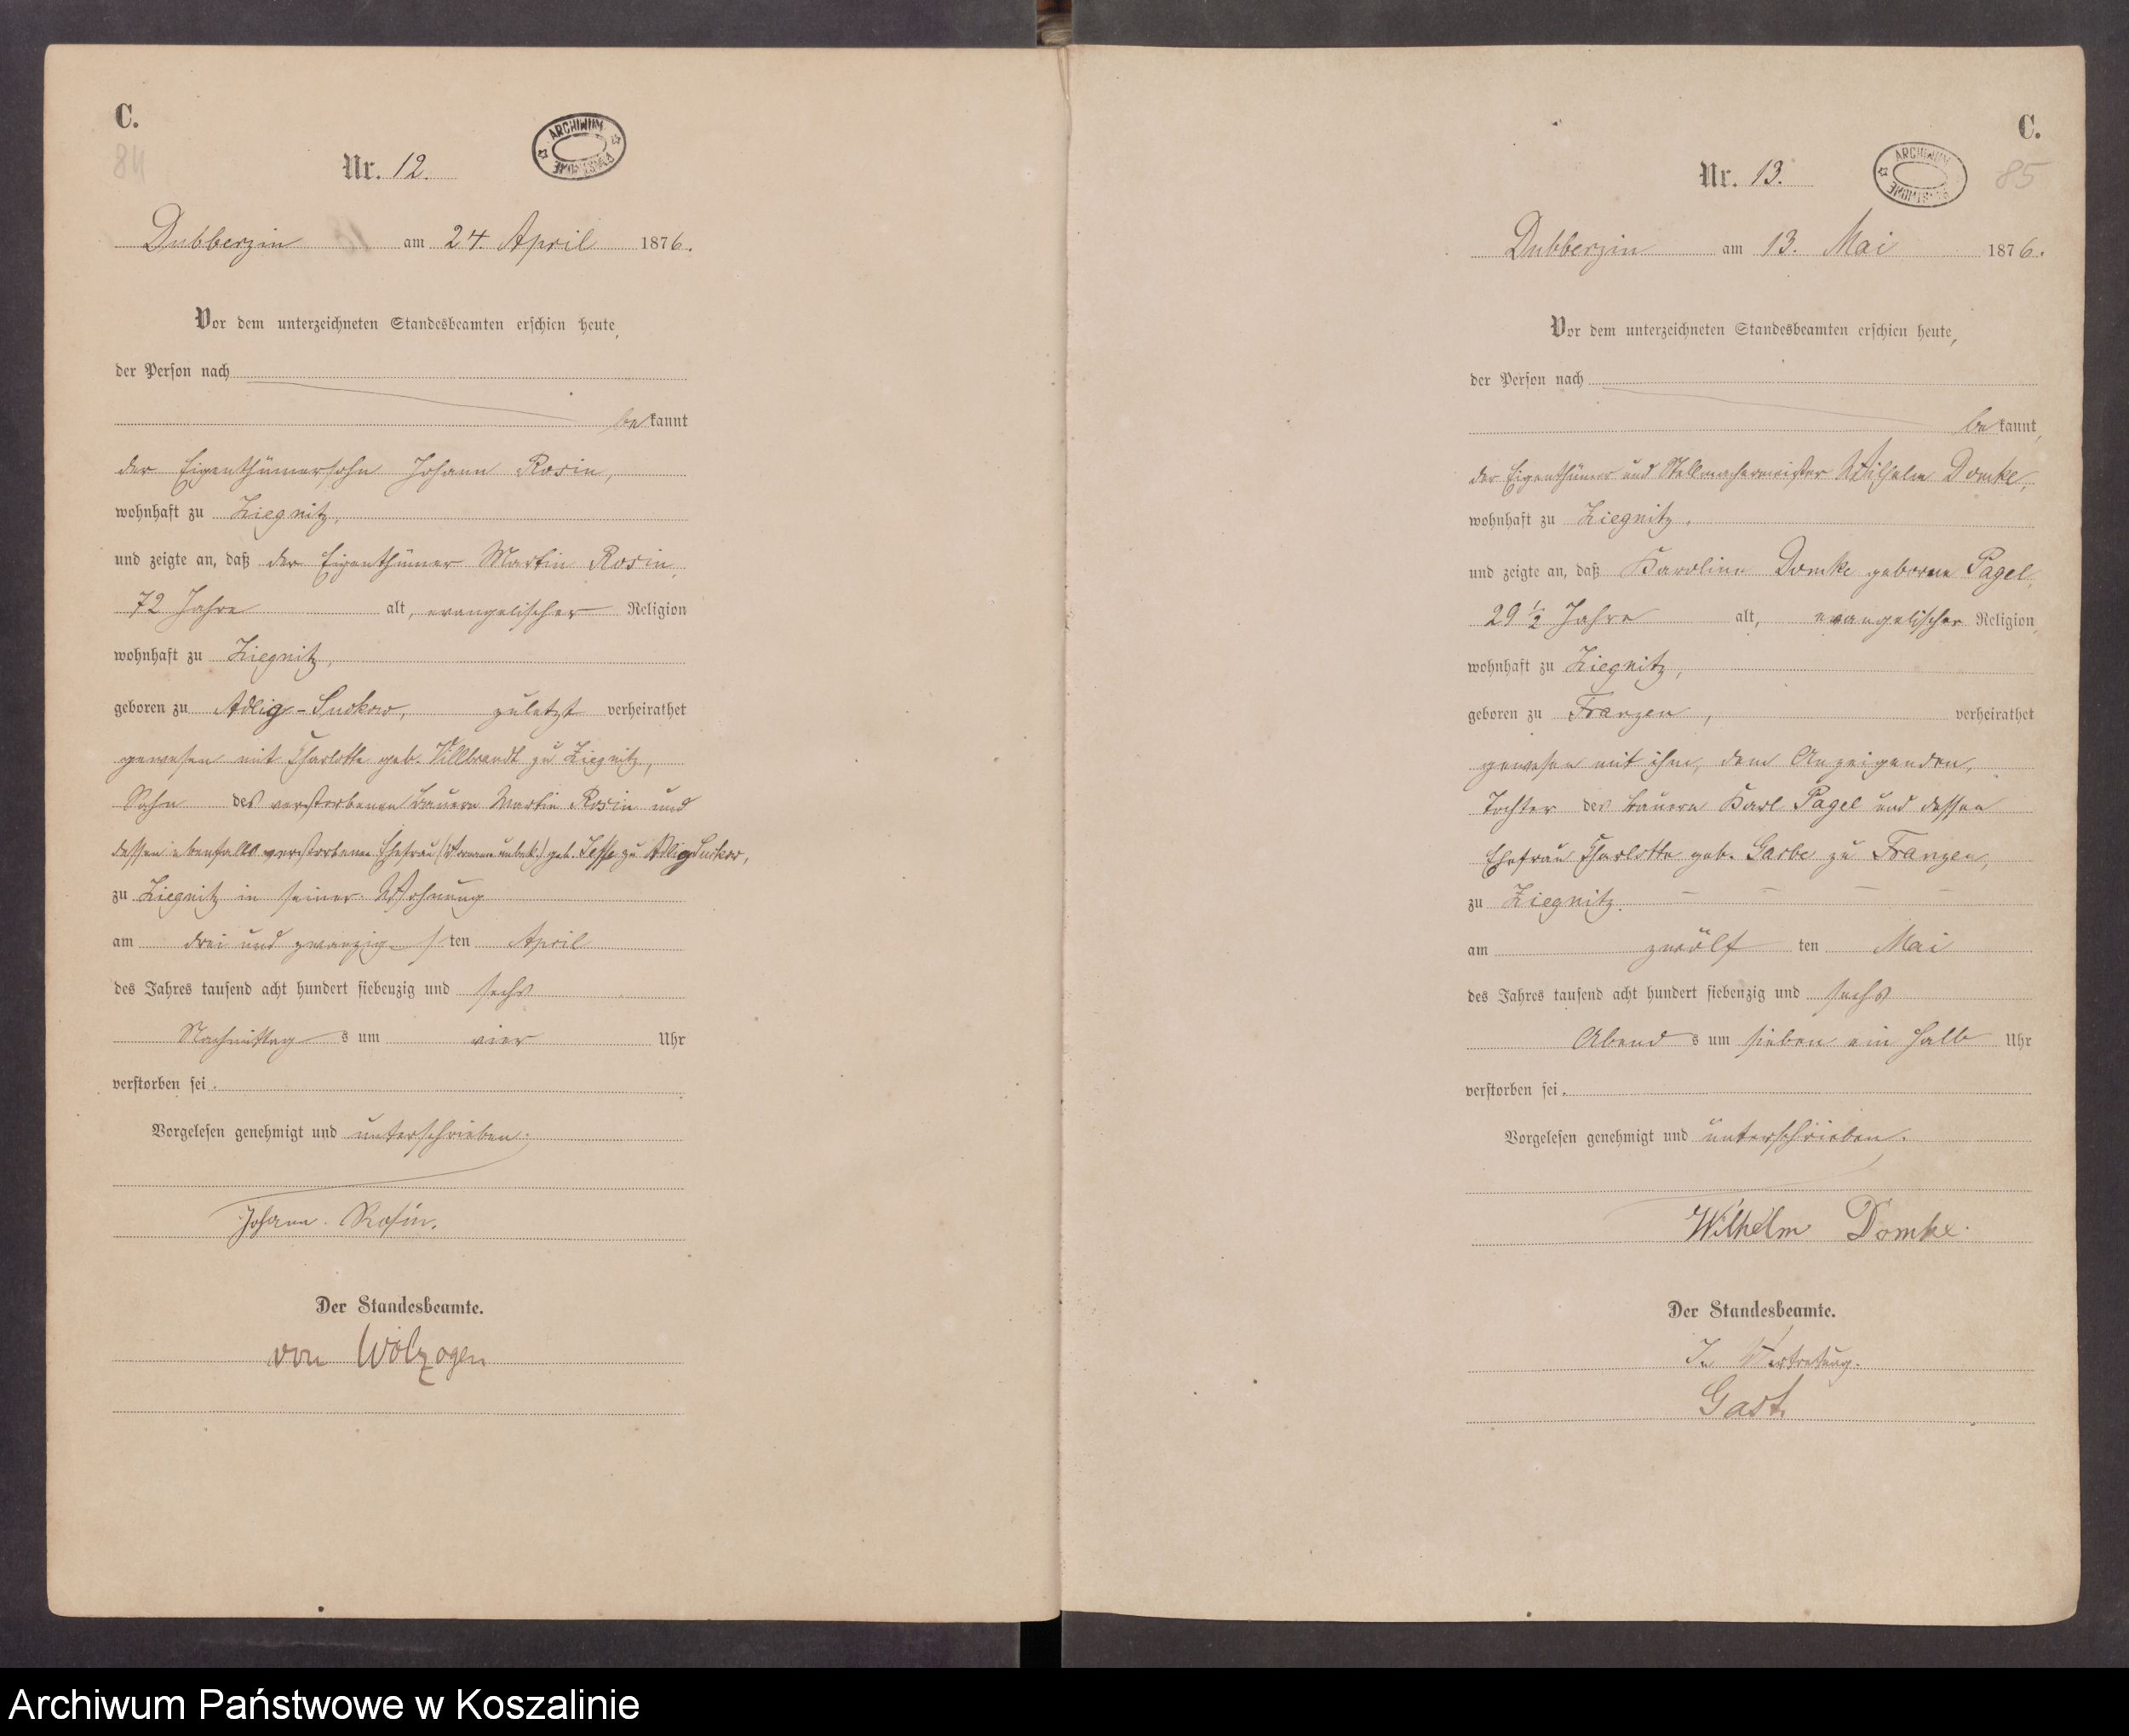 C.
84
Nr. 12.
ARCHIWUM PAŃSTWOWE
Dubberzin am 24. April 1876.
Vor dem unterzeichneten Standesbeamten erschien heute,
der Person nach
bekannt
der Eigenthümersohn Johann Rosin,
wohnhaft zu Ziegnitz,
und zeigte an, daß der Eigenthümer Martin Rosin,
72 Jahre alt, evangelischer Religion
wohnhaft zu Ziegnitz,
geboren zu Adlig-Suckow, zuletzt verheirathet
gewesen mit Charlotte geb. Villbrandt zu Ziegnitz,
Sohn des verstorbenen Bauern Martin Rosin und
dessen ebenfalls verstorbenen Ehefrau (Vorname unbek.) geb. Jesse zu Adlig Suckow,
zu Ziegnitz in seiner Wohnung
am drei und zwanzigsten April
des Jahres tausend acht hundert siebenzig und sechs
Nachmittags um vier Uhr
verstorben sei.
Vorgelesen genehmigt und unterschrieben.
Johann Rosin.
Der Standesbeamte.
von Wolzogen
C.
85
Nr. 13.
ARCHIWUM PAŃSTWOWE
Dubberzin am 13. Mai 1876.
Vor dem unterzeichneten Standesbeamten erschien heute,
der Person nach
bekannt,
der Eigenthümer und Stellmachermeister Wilhelm Domke,
wohnhaft zu Ziegnitz.
und zeigte an, daß Karoline Domke geborene Pagel,
29 ½ Jahre alt, evangelischer Religion,
wohnhaft zu Ziegnitz,
geboren zu Franzen, verheirathet
gewesen mit ihm, dem Anzeigenden,
Tochter des Bauern Karl Pagel und dessen
Ehefrau Charlotte geb. Garbe zu Franzen,
zu Ziegnitz.
am zwölften Mai
des Jahres tausend acht hundert siebenzig und sechs
Abends um sieben ein halb Uhr
verstorben sei.
Vorgelesen genehmigt und unterschrieben.
Wilhelm Domke.
Der Standesbeamte.
In Vertretung.
Gast.
Archiwum Państwowe w Koszalinie